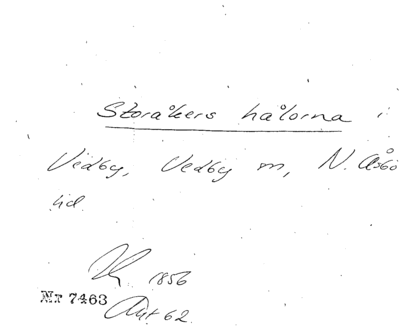 Storåkers hålorna i
Vedby, Vedby m, N. Åsbo
hd
1856
Nr 7463
Akt 62